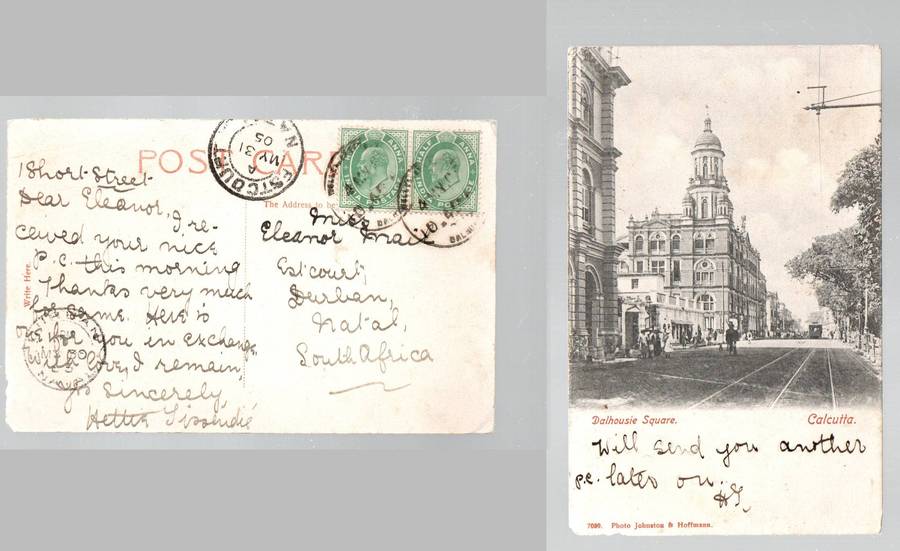 POST CARD
The Address to be
Write Here.
1 Short Street
Dear Eleanor, I re-
ceived your nice
p.c. this morning
Thanks very much
for same. Here is
one for you in exchange
With love, I remain,
yrs Sincerely,
Miss
Eleanor Mail
Estcourt,
Durban,
Natal,
South Africa
ESTCOURT NATAL
A
MY 31
05
HALF ANNA
HALF ANNA
Dalhousie Square. Calcutta.
Will send you another
p.c. later on.
7080. Photo Johnston & Hoffmann.